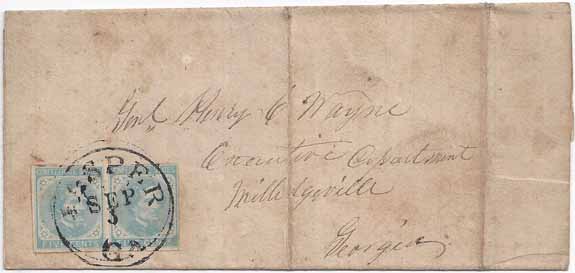 Genl Henry C Wayne
Executive Department
Milledgeville
Georgia
JASPER
SEP
3
Ga
FIVE CENTS